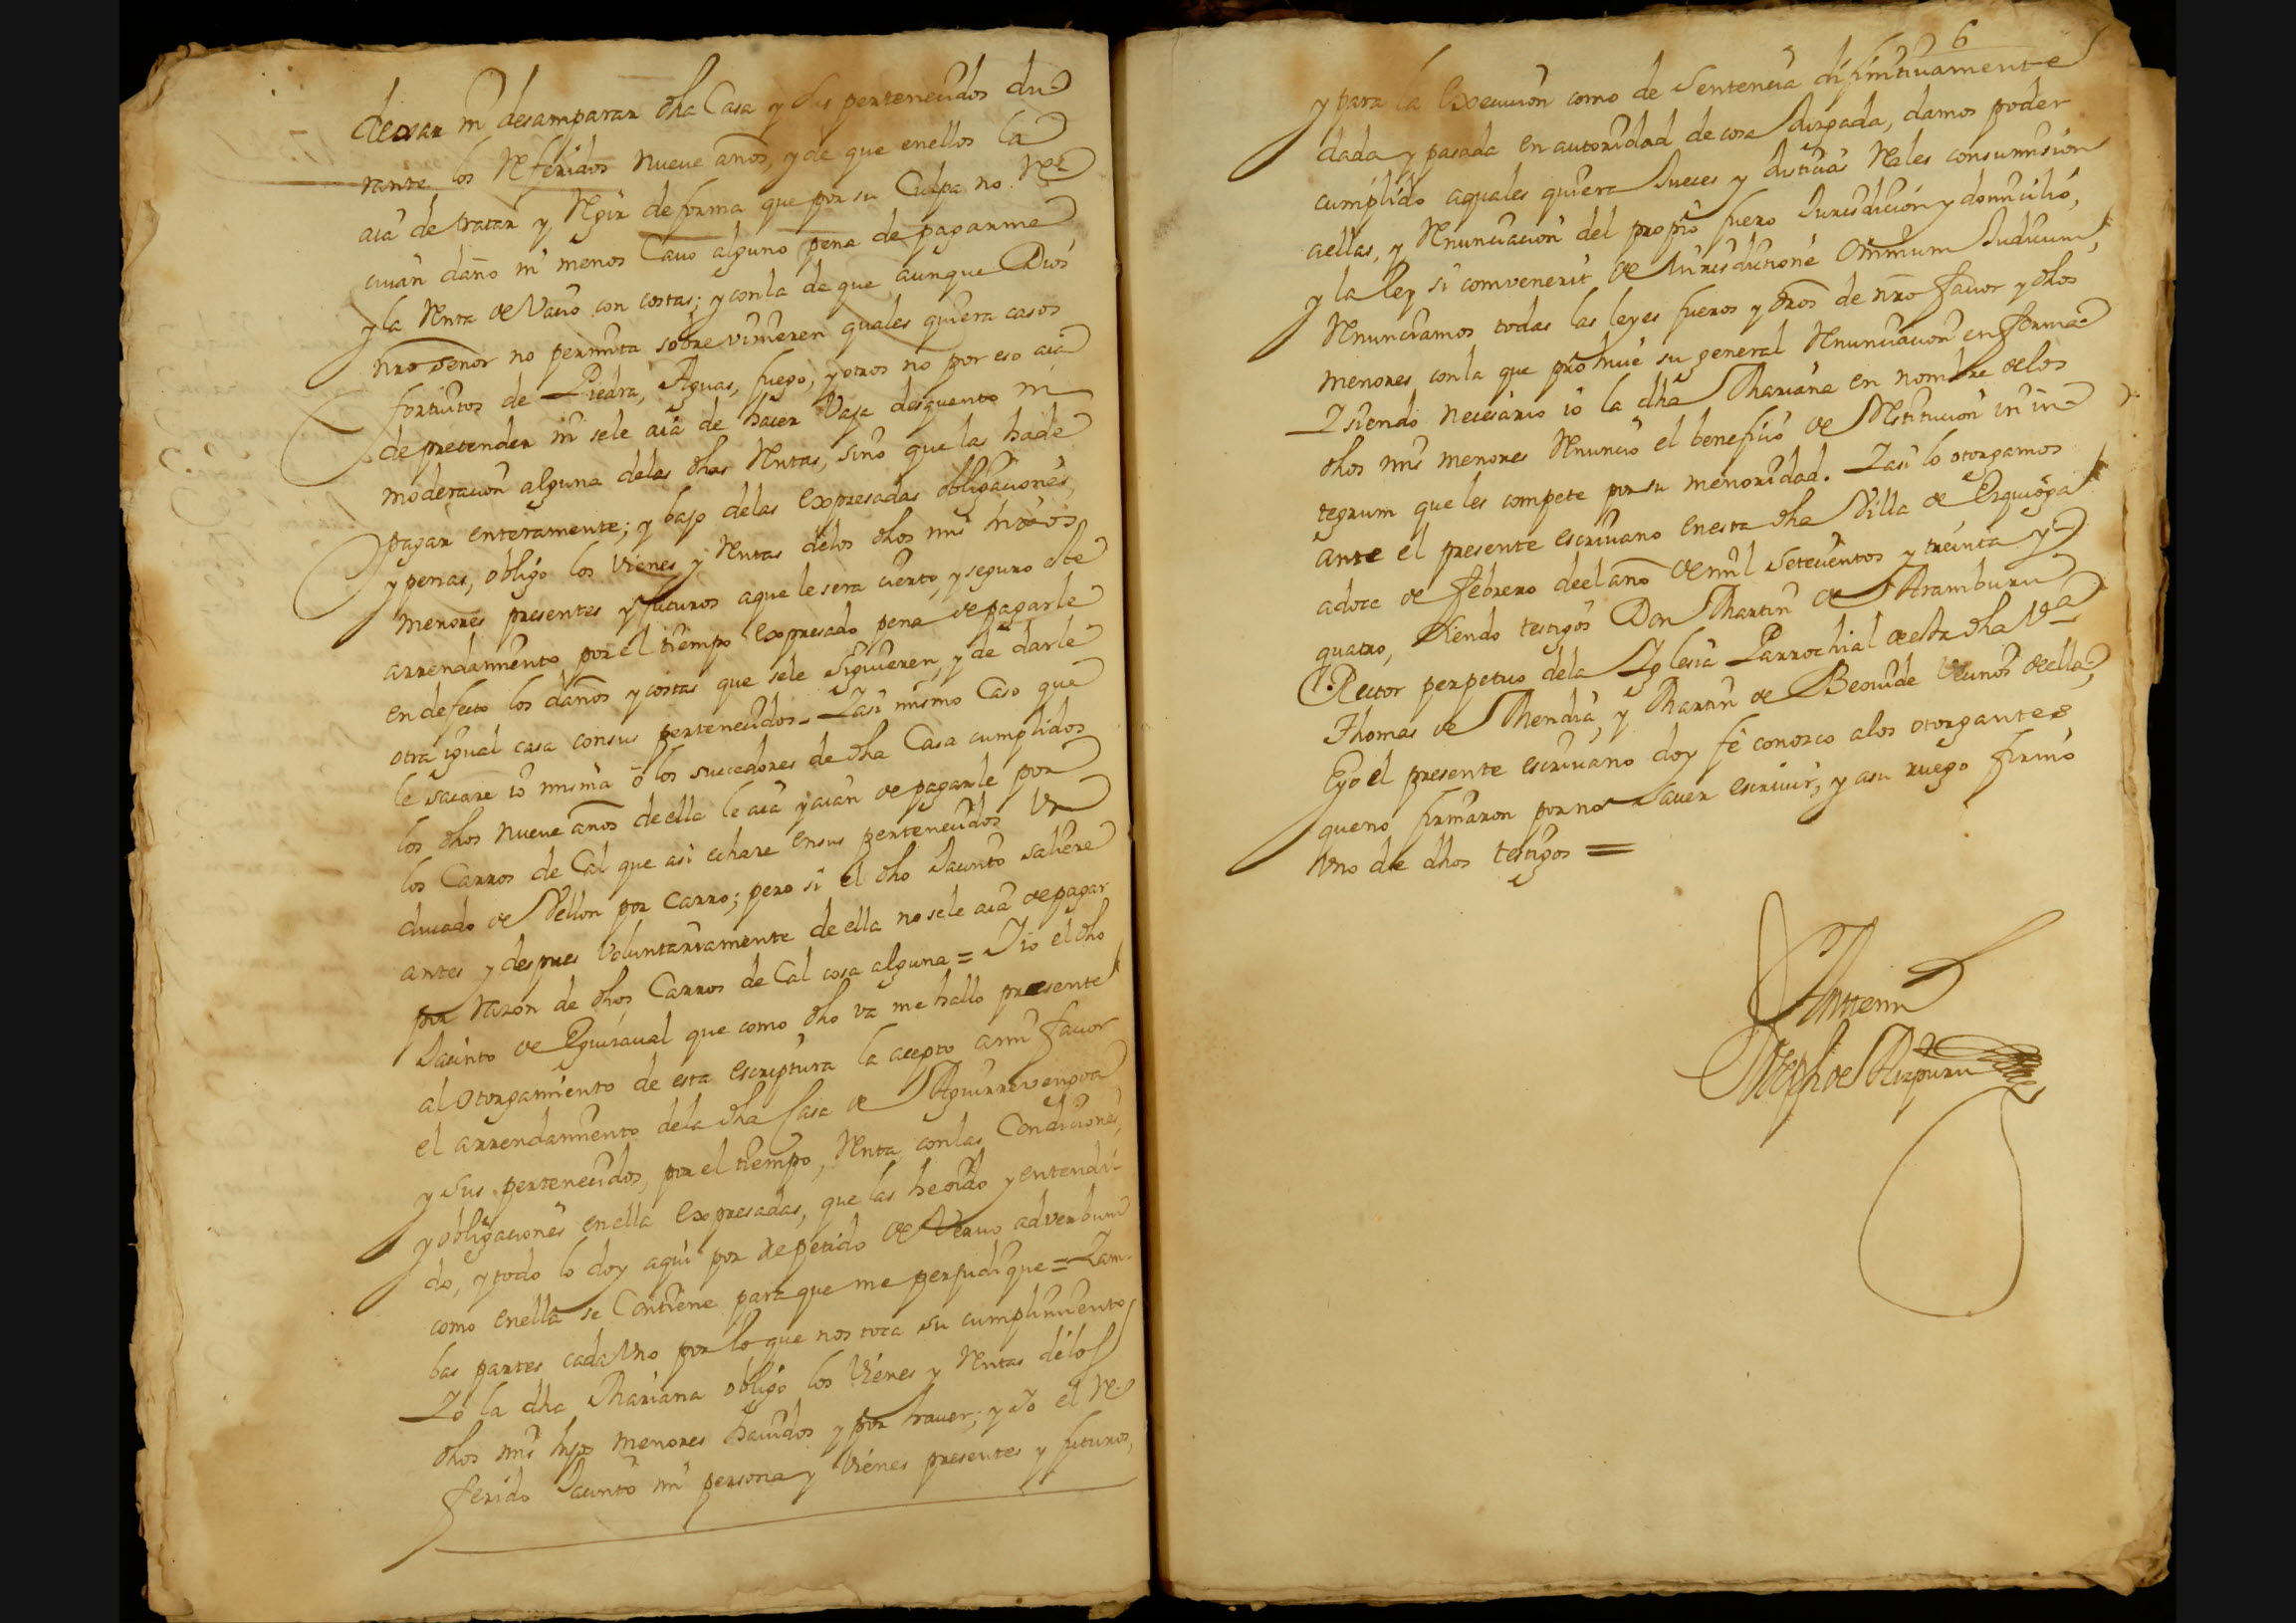 dexar ni desamparar dha Casa y sus pertenecidos du-
rante los Referidos nueve años, y de que enellos la
aia de tratar y Regir de forma que por su Culpa no Re-
civan daño ni menos Cavo alguno pena de pagarme
y la Renta de Vacio con costas; y conla de que aunque Dios
nro señor no permita sobrevinieren quales quiera casos
fortuitos de Piedra, Aguas, fuego, y otros no por eso aia
de pretender ni sele aia de hacer Vaja desquento ni
moderacion alguna delas dhas Rentas, sino que las hade
pagar enteramente; y bajo delas expresadas obligaciones,
y penas, obligo los Vienes y Rentas delos dhos mis hijos
menores presentes y futuros aque le sera cierto, y seguro este
arrendamiento por el tiempo expresado pena de pagarle
en defecto los daños y costas que sele siguieren, y de darle
otra igual casa consus pertenecidos. Y asi mismo Caso que
le sacare io misma ô los subcedores de dha Casa cumplidos
los dhos nueve años de ella le aia y aian de pagarle por
los Carros de Cal que asi echare ensus pertenecidos Un
ducado de Vellon por carro; pero si el dho Jacinto saliere
antes y despues Voluntariamente de ella no sele aia de pagar
por razon de dhos Carros de Cal cosa alguna = Y io el dho
Jacinto de Eguiraval que como dho va me hallo presente
al otorgamiento de esta escriptura la acepto ami favor
el arrendamiento dela dha Casa de Aguirrevengoa
y sus pertenecidos, por el tiempo, Renta conlas Condiciones,
y obligaciones enella expresadas, que las he oido y entendi-
do, y todo lo doy aqui por repetido de Vervo adverbum
como enella se Contiene paraque me perjudique = Y am-
bas partes cada Uno por lo que nos toca su cumplimiento
Yo la dha Mariana obligo los Vienes y Rentas delos
dhos mis hijos menores havidos y por haver; y Yo el Re-
ferido Jacinto mi persona y Vienes presentes y futuros,
6
y para la execucion como de Sentencia difinitivamente
dada y pasada en autoridad de cosa Juzgada, damos poder
cumplido aquales quiera Jueces y Justicias Reales consumision
aellas, y Renunciacion del propio fuero Jurisdicion y domicilio,
y la ley si comvenerit de Jurisdictione Omnium Judicum,
Renunciamos todas las leyes fueros y dros de nro favor y dhos
menores conla que prohive su general Renunciacion en forma
Y siendo necesario io la dha Mariana en nombre delos
dhos mis menores Renuncio el beneficio de Restitucion in in-
tegrum que les compete por su menoridad. Y asi lo otorgamos
ante el presente escrivano enesta dha Villa de Ezquioga
adoce de febrero de el año de mil Setecientos y treinta y
quatro, siendo testigos Don Martin de Aramburu
Rector perpetuo dela Iglesia Parrochial de esta dha Va
Thomas de Mendia, y Martin de Beovide Vecinos de ella,
Eyo el presente escrivano doy fe conosco alos otorgantes
queno firmaron por no saver escrivir, y asu ruego firmo
Uno de dhos testigos =
Antemi
Joseph de Aizpuru